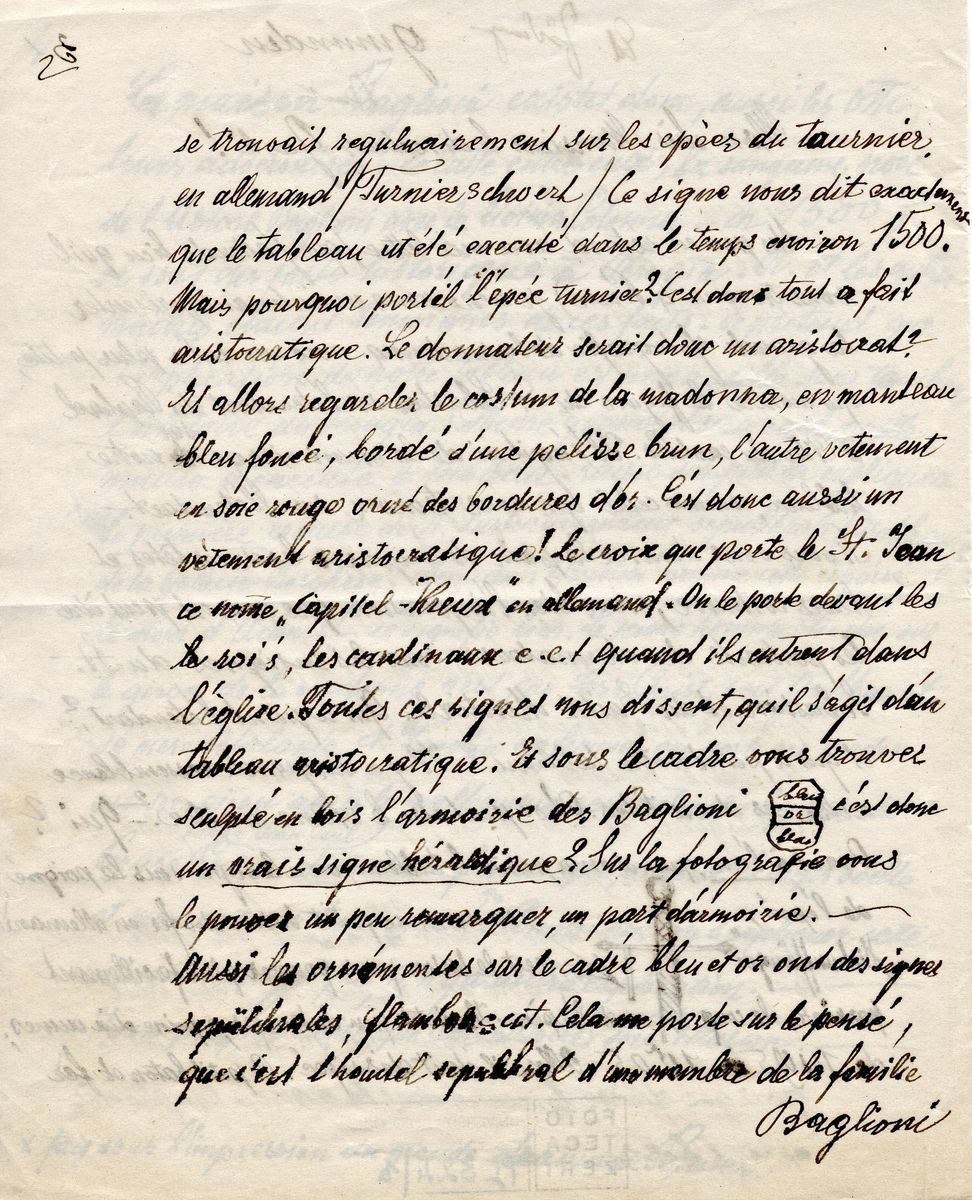 26
se trouvait regulnairement sur les epées du tournier,
en allemand (Turnierschwert) Ce signe nous dit exactement
que le tableau ut été executé dans le temps environ 1500.
Mais pourquoi portél l'epée turnier? C'est donc tout a fait
aristocratique. Le donnateur serait donc un aristocrat?
Et allors regardez le costum de la madonna, en manteau
bleu foncé, bordé d'une pelisse brun, l'autre vetement
en soie rouge orné des bordures d'or. C'est donc aussi un
vètement aristocratique! Le croix que porte le St. Jean
ce nome „Capitel-Kreux" en allemand. On le porte devant les
le roi's, les cardinaux e.c.t quand ils entrent dans
l'églire. Toutes ces signes nous dissent, qu il s'agit d'un
tableau aristocratique. Et sous le cadre vous trouvez
sculpté en bois l'armoirie des Baglioni bleu or bleu c'est donc
un vrais signe héraldique? Sur la fotografie vous
le pouvez un peu remarquer, un part d'armoirie. —
Aussi les ornémentes sur le cadré bleu et or ont des signes
sepülchrales, ect. Cela me porte sur le pensé,
que c'est l'hautel sepulkral d'une membre de la familie
Baglioni
FOTO
TECA
ZERI